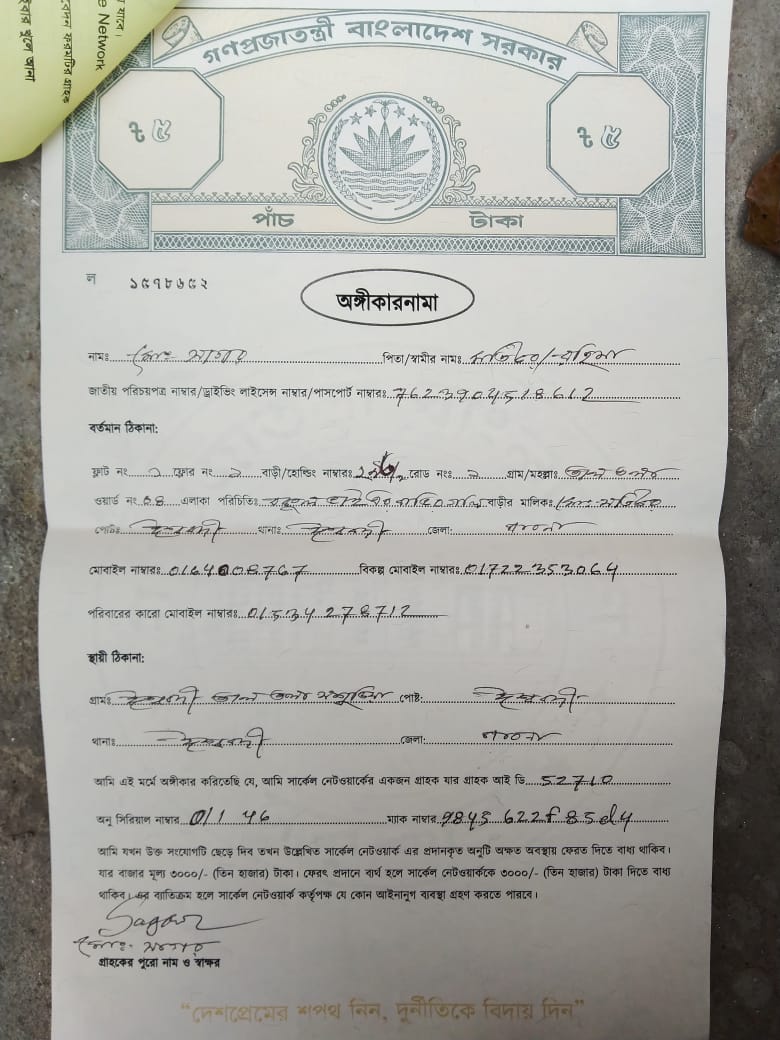 যাবে।
e Network
বেদন ফরমটির গ্রাহক
ইবার খুলে আনা
গণপ্রজাতন্ত্রী বাংলাদেশ সরকার
৳ ৫
৳ ৫
পাঁচ টাকা
ল ১৫৭৮৬৫২
অঙ্গীকারনামা
নামঃ মোঃ সাগর পিতা/স্বামীর নামঃ
জাতীয় পরিচয়পত্র নাম্বার/ড্রাইভিং লাইসেন্স নাম্বার/পাসপোর্ট নাম্বারঃ 7623904518612
বর্তমান ঠিকানা:
ফ্লাট নং ফ্লোর নং বাড়ী/হোল্ডিং নাম্বারঃ রোড নংঃ গ্রাম/মহল্লাঃ
ওয়ার্ড নং 04 এলাকা পরিচিতিঃ বাড়ীর মালিকঃ
পোষ্টঃ ঈশ্বরদী থানাঃ ঈশ্বরদী জেলা: পাবনা
মোবাইল নাম্বারঃ বিকল্প মোবাইল নাম্বারঃ 01722353064
পরিবারের কারো মোবাইল নাম্বারঃ 01534278712
স্থায়ী ঠিকানা:
গ্রামঃ ঈশ্বরদী পোষ্ট: ঈশ্বরদী
থানাঃ ঈশ্বরদী জেলা: পাবনা
আমি এই মর্মে অঙ্গীকার করিতেছি যে, আমি সার্কেল নেটওয়ার্কের একজন গ্রাহক যার গ্রাহক আই ডি 52710
অনু সিরিয়াল নাম্বার 01146 ম্যাক নাম্বার 9845 622f 85d4
আমি যখন উক্ত সংযোগটি ছেড়ে দিব তখন উল্লেখিত সার্কেল নেটওয়ার্ক এর প্রদানকৃত অনুটি অক্ষত অবস্থায় ফেরত দিতে বাধ্য থাকিব।
যার বাজার মূল্য ৩০০০/- (তিন হাজার) টাকা। ফেরৎ প্রদানে ব্যর্থ হলে সার্কেল নেটওয়ার্ককে ৩০০০/- (তিন হাজার) টাকা দিতে বাধ্য
থাকিব। এর ব্যাতিক্রম হলে সার্কেল নেটওয়ার্ক কর্তৃপক্ষ যে কোন আইনানুগ ব্যবস্থা গ্রহণ করতে পারবে।
Sagor
মোঃ সাগর
গ্রাহকের পুরো নাম ও স্বাক্ষর
“দেশপ্রেমের শপথ নিন, দুর্নীতিকে বিদায় দিন”